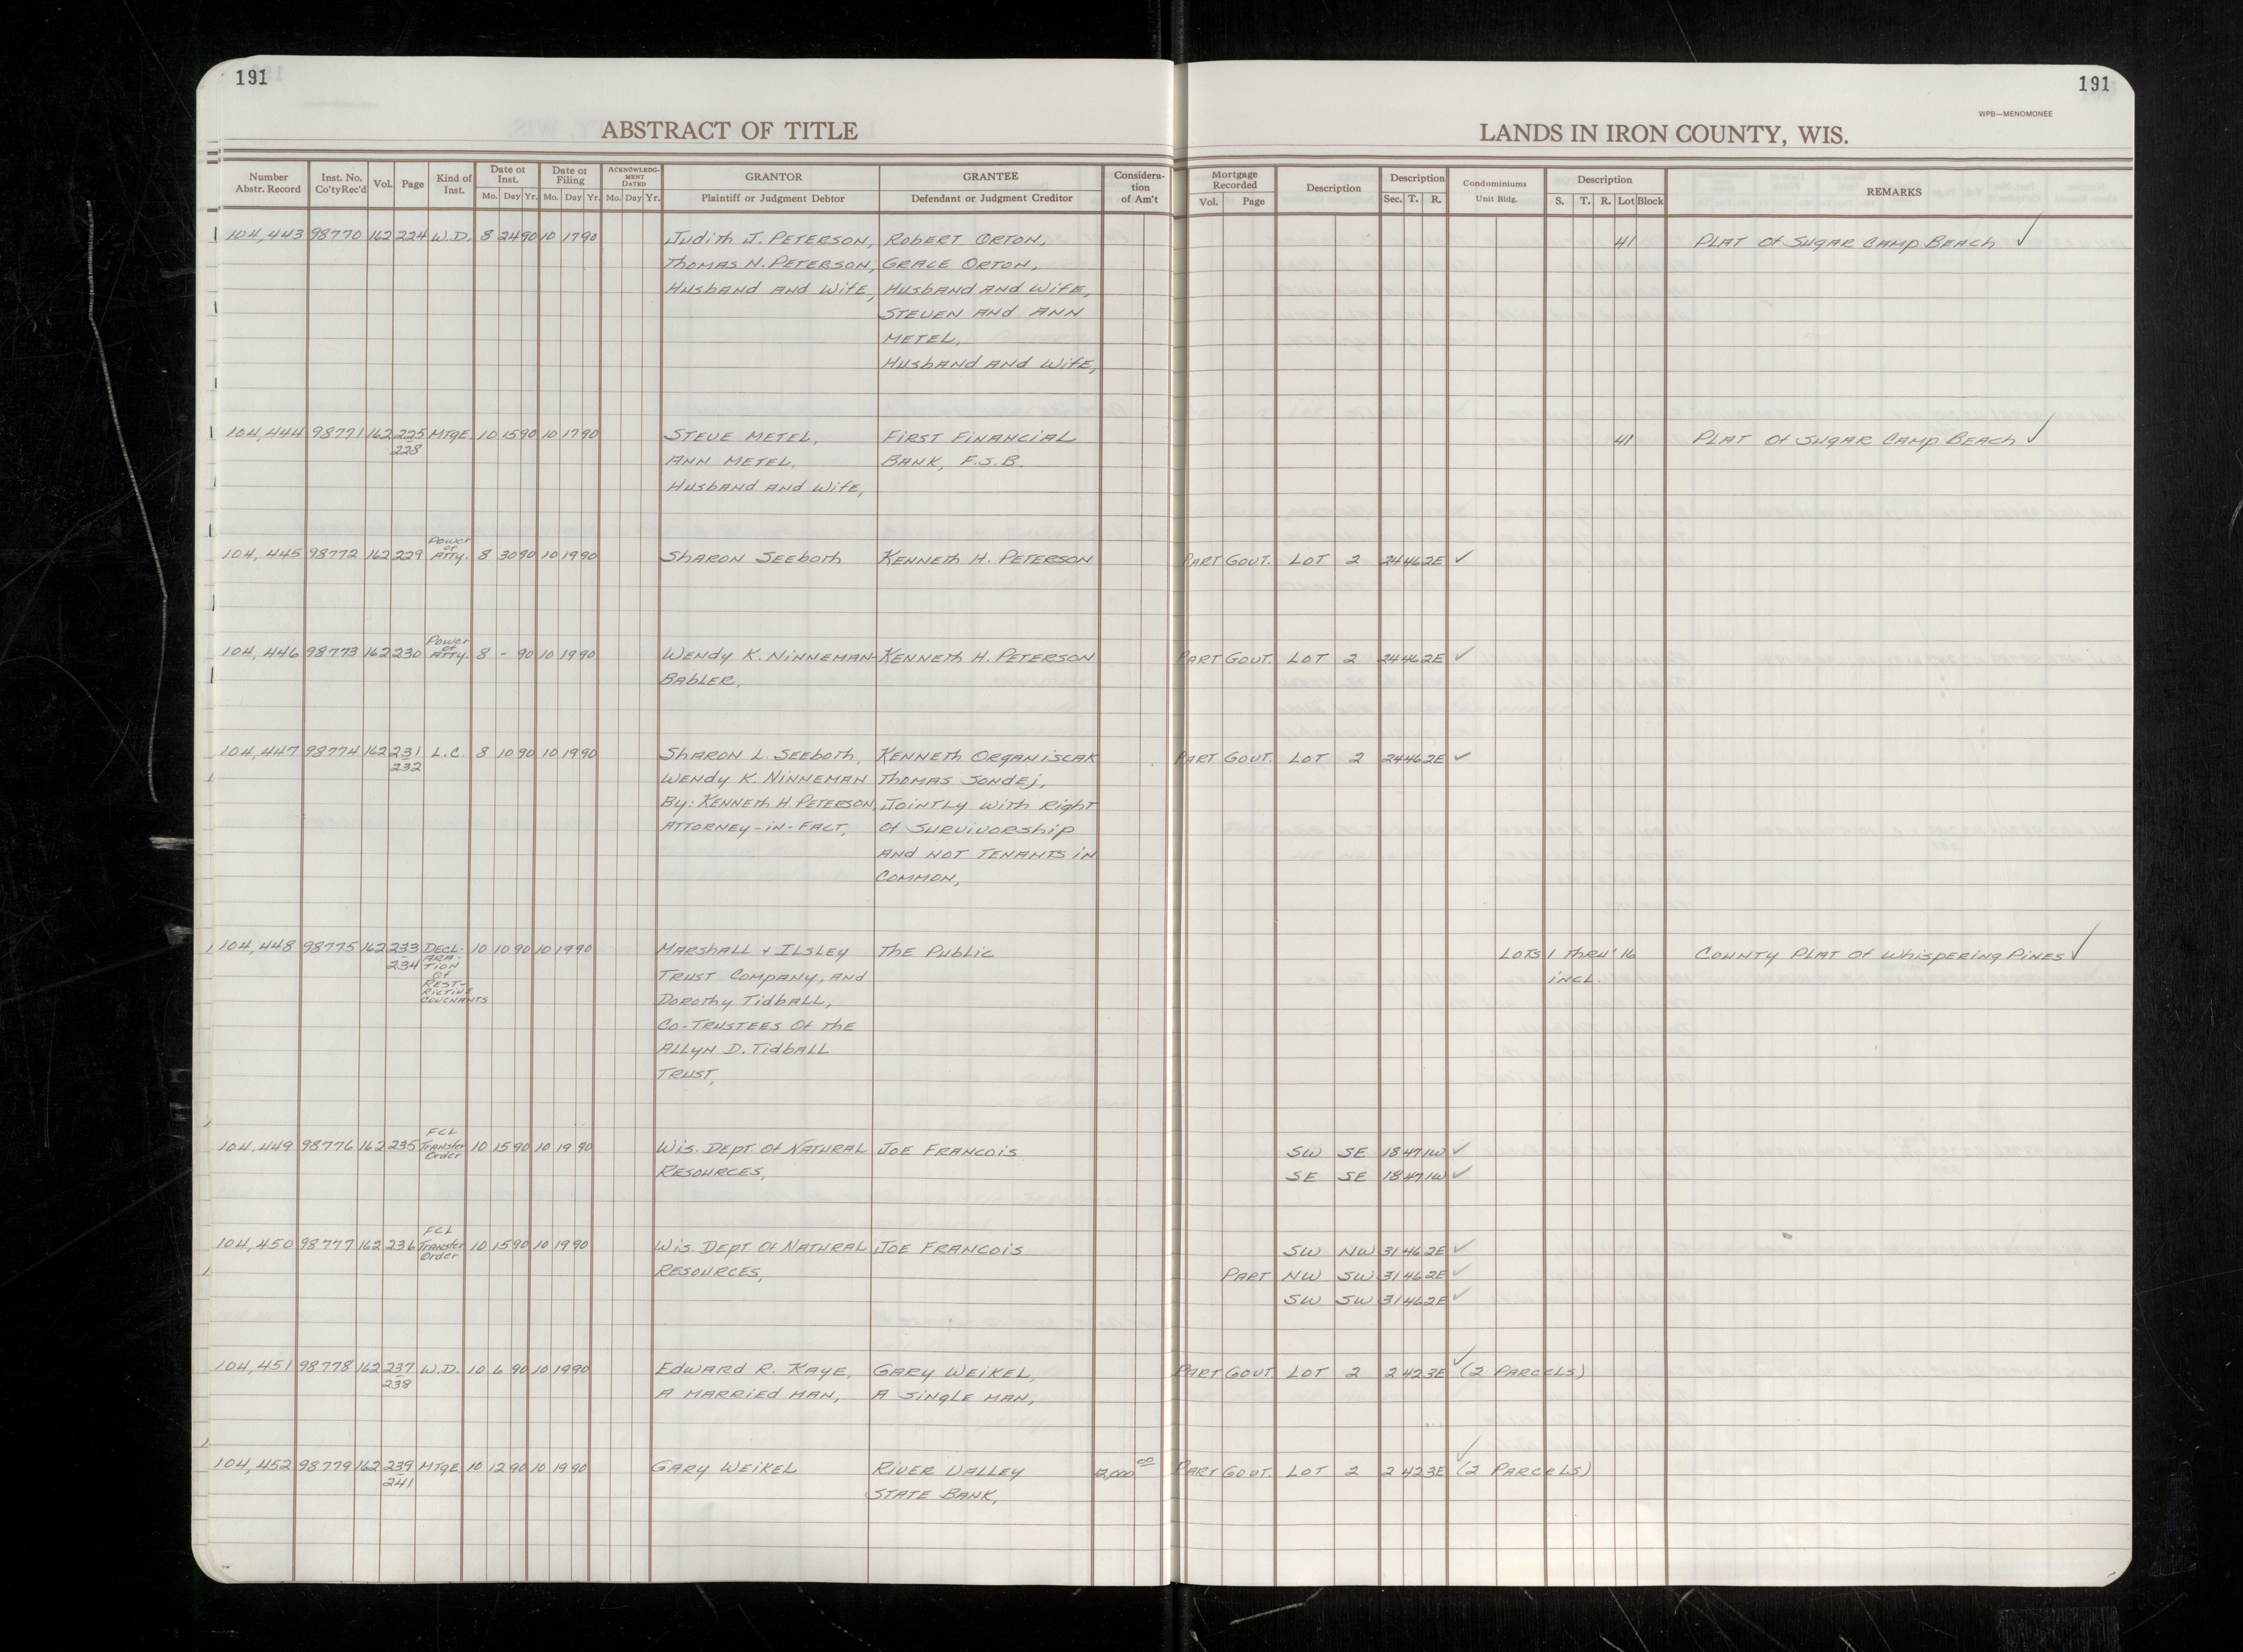 191
191
WPB—MENOMONEE
ABSTRACT OF TITLE
LANDS IN IRON COUNTY, WIS.
Number Abstr. Record | Inst. No. Co'ty Rec'd | Vol. | Page | Kind of Inst. | Date of Inst. Mo. Day Yr. | Date of Filing Mo. Day Yr. | ACKNOWLEDGMENT DATED Mo. Day Yr. | GRANTOR Plaintiff or Judgment Debtor | GRANTEE Defendant or Judgment Creditor | Consideration of Am't | Mortgage Recorded Vol. Page | Description | Description Sec. T. R. | Condominiums Unit Bldg. | Description S. T. R. Lot Block | REMARKS
104,443 98770 162 224 W.D. 8 24 90 10 17 90 Judith J. PETERSON, Robert ORTON, 41 PLAT Of SUGAR CAMP BEACH ✓
Thomas N. PETERSON, GRACE ORTON,
Husband and Wife, Husband and Wife,
STEVEN and ANN
METEL,
Husband and Wife,
104,444 98771 162 225 MTGE. 10 15 90 10 17 90 STEVE METEL, FIRST FINANCIAL 41 PLAT Of SUGAR CAMP BEACH ✓
228 ANN METEL, BANK, F.S.B.
Husband and Wife,
Power
of
104,445 98772 162 229 ATTY. 8 30 90 10 19 90 SHARON SEEBOTH KENNETH H. PETERSON PART GOVT. LOT 2 24 46 2E ✓
Power
of
104,446 98773 162 230 ATTY. 8 - 90 10 19 90 WENDY K. NINNEMAN- KENNETH H. PETERSON PART GOVT. LOT 2 24 46 2E ✓
BABLER,
104,447 98774 162 231 L.C. 8 10 90 10 19 90 SHARON L. SEEBOTH, KENNETH ORGANISCAK PART GOVT. LOT 2 24 46 2E ✓
232 WENDY K. NINNEMAN THOMAS SONDEJ,
By: KENNETH H. PETERSON, JOINTLY WITH RIGHT
ATTORNEY-IN-FACT, Of SURVIVORSHIP
AND NOT TENANTS IN
COMMON,
104,448 98775 162 233 DECL- 10 10 90 10 19 90 MARSHALL + ILSLEY THE PUBLIC LOTS 1 THRU' 16 COUNTY PLAT Of WHISPERING PINES ✓
234 ARA- TRUST COMPANY, AND incl.
TION DOROTHY TIDBALL,
Of CO-TRUSTEES Of THE
REST- ALLYN D. TIDBALL
RICTIVE TRUST,
COVENANTS
FCL
104,449 98776 162 235 Transfer 10 15 90 10 19 90 WIS. DEPT. Of NATURAL JOE FRANCOIS SW SE 18 47 1W ✓
Order RESOURCES, SE SE 18 47 1W ✓
FCL
104,450 98777 162 236 Transfer 10 15 90 10 19 90 WIS. DEPT Of NATURAL JOE FRANCOIS SW NW 31 46 2E ✓
Order RESOURCES, PART NW SW 31 46 2E ✓
SW SW 31 46 2E ✓
104,451 98778 162 237 W.D. 10 6 90 10 19 90 EDWARD R. KAYE, GARY WEIKEL, PART GOVT LOT 2 2 42 3E ✓ (2 PARCELS)
238 A MARRIED MAN, A SINGLE MAN,
104,452 98779 162 239 MTGE 10 12 90 10 19 90 GARY WEIKEL RIVER VALLEY 12,000 00 PART GOVT. LOT 2 2 42 3E ✓ (2 PARCELS)
241 STATE BANK,